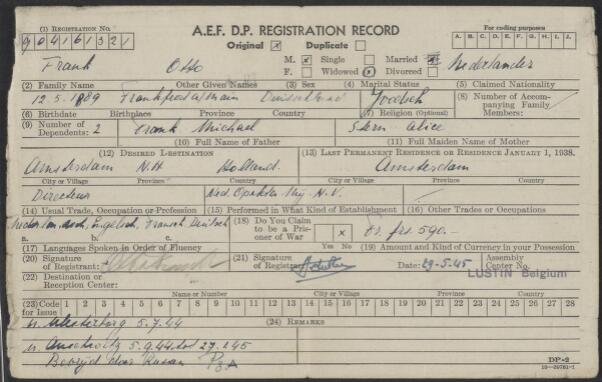 (1) REGISTRATION NO. A.E.F. D.P. REGISTRATION RECORD For coding purposes
Original x Duplicate A. B. C. D. E. F. G. H. I. J.
M. x Single Married
Frank Otto F. Widowed Divorced Nederlander
(2) Family Name Other Given Names (3) Sex (4) Marital Status (5) Claimed Nationality
12.5.1889 Joodsch (8) Number of Accompanying Family Members:
(6) Birthdate Birthplace Province Country (7) Religion (Optional)
(9) Number of Dependents: 2 Frank Michael Stern Alice
(10) Full Name of Father (11) Full Maiden Name of Mother
(12) DESIRED DESTINATION (13) LAST PERMANENT RESIDENCE OR RESIDENCE JANUARY 1, 1938.
Amsterdam N.H Holland. Amsterdam
City or Village Province Country City or Village Province Country
Directeur Ned. Opekta Mij. N.V.
(14) Usual Trade, Occupation or Profession (15) Performed in What Kind of Establishment (16) Other Trades or Occupations
Engelsch, Fransch, (18) Do You Claim to be a Prisoner of War x frs. 590.-
a. b. c. Yes No
(17) Languages Spoken in Order of Fluency (19) Amount and Kind of Currency in your Possession
(20) Signature of Registrant: (21) Signature of Registrar: Date: 29-5-45 Assembly Center No.
(22) Destination or Reception Center: LUSTIN Belgium
Name or Number City or Village Province Country
(23) Code for Issue 1 2 3 4 5 6 7 8 9 10 11 12 13 14 15 16 17 18 19 20 21 22 23 24 25 26 27 28
n. Westerborg 5.7.44 (24) REMARKS
n. Auschwitz 5.9.44 tot 27.1.45
Bevrijd door Russen
DP-2